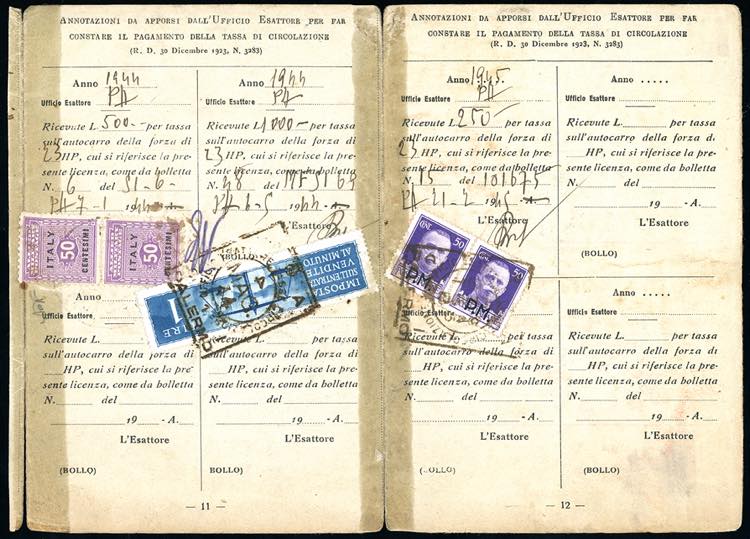 Annotazioni da apporsi dall'Ufficio Esattore per far
constare il pagamento della tassa di circolazione
(R. D. 30 Dicembre 1923, N. 3283)
Anno 1944
Ufficio Esattore PA
Ricevute L. 500.- per tassa
sull'autocarro della forza di
23 HP, cui si riferisce la pre-
sente licenza, come da bolletta
N. 6 del 51-6-
PA 7-1 1944 -A-
ITALY 50 CENTESIMI
ITALY 50 CENTESIMI
Anno 1944
Ufficio Esattore PA
Ricevute L. 1000- per tassa
sull'autocarro della forza di
23 HP, cui si riferisce la pre-
sente licenza, come da bolletta
N. 48 del
1944 -A-
L'Esattore
(BOLLO)
IMPOSTA
SULL'ENTRATA
VENDITE
AL MINUTO
1 LIRE
PALERMO
Anno
Ufficio Esattore
Ricevute L. per tassa
sull'autocarro della forza di
HP, cui si riferisce la pre-
sente licenza, come da bolletta
N. del
19 -A.
L'Esattore
(BOLLO)
Ricevute L. per tassa
sull'autocarro della forza di
HP, cui si riferisce la pre-
sente licenza, come da bolletta
N. del
19 -A.
L'Esattore
(BOLLO)
— 11 —
Annotazioni da apporsi dall'Ufficio Esattore per far
constare il pagamento della tassa di circolazione
(R. D. 30 Dicembre 1923, N. 3283)
Anno 1945
Ufficio Esattore PA
Ricevute L. 250- per tassa
sull'autocarro della forza di
23 HP, cui si riferisce la pre-
sente licenza, come da bolletta
N. 15 del 101675
PA 21-2 1945 -A-
L'Esattore
50
P.M.
50
P.M.
Anno .....
Ufficio Esattore
Ricevute L. per tassa
sull'autocarro della forza di
HP, cui si riferisce la pre-
sente licenza, come da bolletta
N. del
19 -A.
L'Esattore
(BOLLO)
Ricevute L. per tassa
sull'autocarro della forza di
HP, cui si riferisce la pre-
sente licenza, come da bolletta
N. del
19 -A.
L'Esattore
Anno
Ufficio Esattore
Ricevute L. per tassa
sull'autocarro della forza di
HP, cui si riferisce la pre-
sente licenza, come da bolletta
N. del
19 -A.
L'Esattore
(BOLLO)
— 12 —